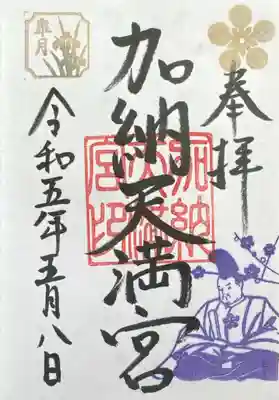 奉拝
加納天満宮
加納天満宮印
皐月
令和五年五月八日